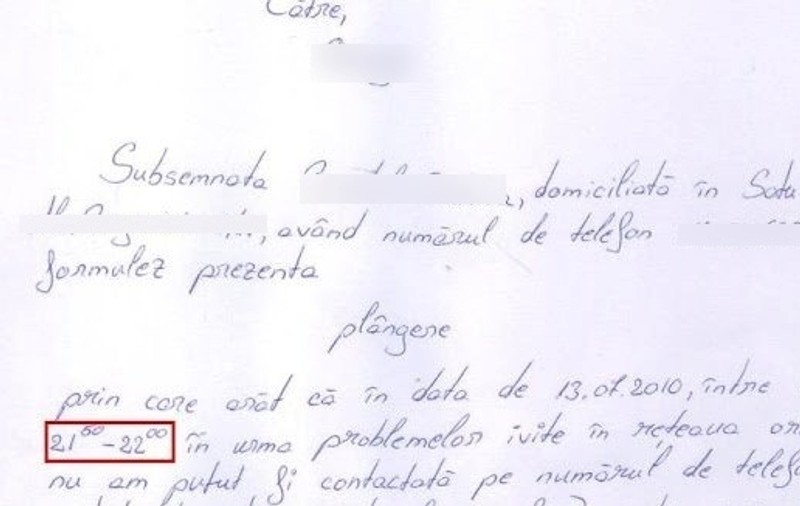 Către,
Subsemnata , domiciliată în Satu
, având numărul de telefon
formulez prezenta
plângere
prin care arăt că în data de 13.07.2010, între
21⁵⁰-22⁰⁰ în urma problemelor ivite în rețeaua
nu am putut fi contactată pe numărul de